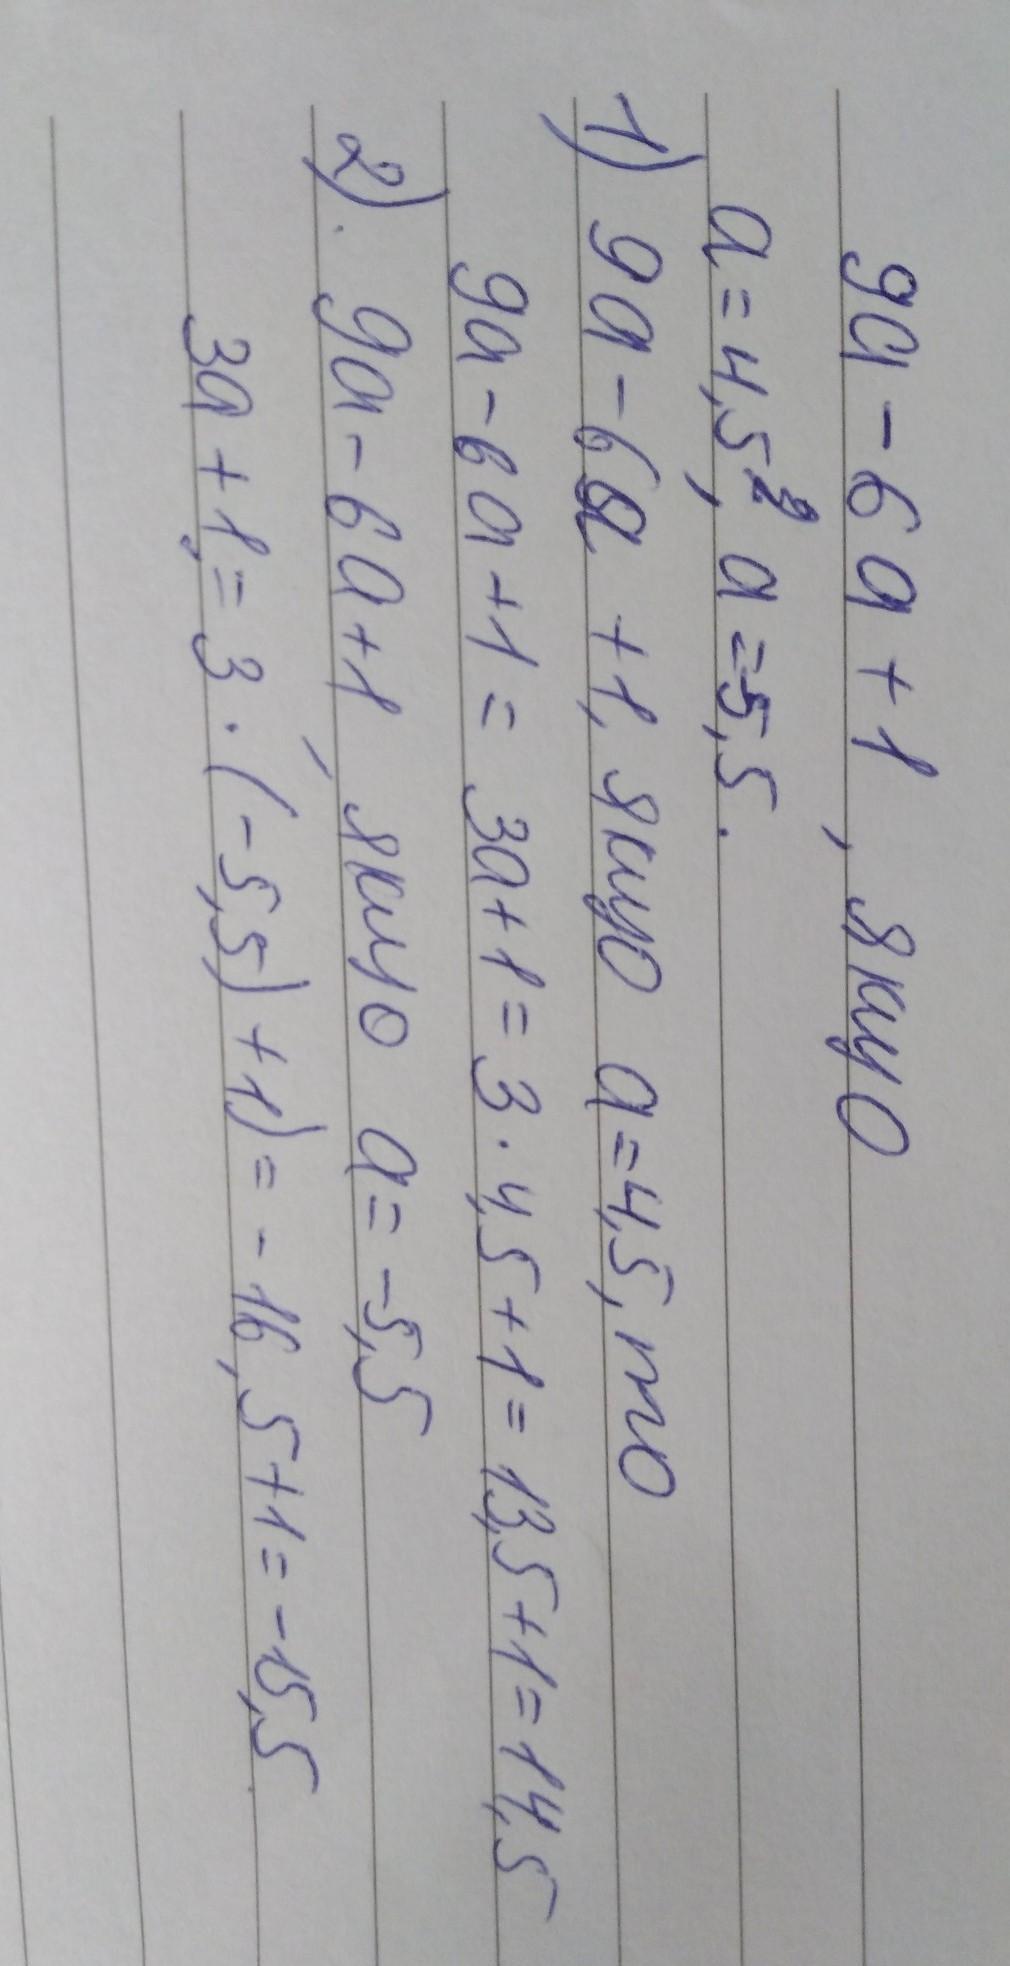 9a - 6a + 1, якщо
a = 4,5, a = -5,5.
1) 9a - 6a + 1, якщо a = 4,5, то
9a - 6a + 1 = 3a + 1 = 3 · 4,5 + 1 = 13,5 + 1 = 14,5
2). 9a - 6a + 1, якщо a = -5,5
3a + 1 = 3 · (-5,5) + 1) = -16,5 + 1 = -15,5